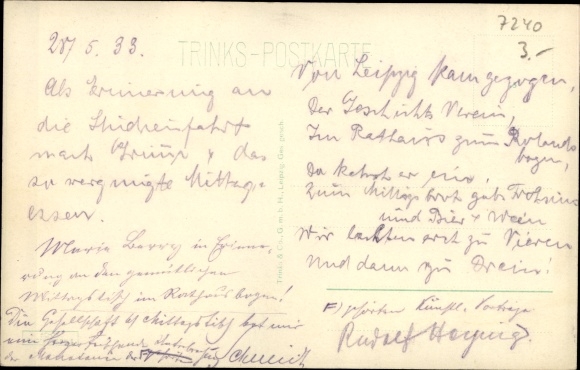 7240
3.-
28/5.33.
TRINKS-POSTKARTE
Als Erinnerung an
die Studienfahrt
nach Grimma & das
so vergnügte Mittag-
essen.
Marie Barry in Erinne-
rung an den gemütlichen
Mittagstisch im Rathausbogen!
Die Gesellschaft am Mittagstisch hat mir
eine
der
Schmidt
Trinks & Co., G. m. b. H., Leipzig. Ges. gesch.
Von Leipzig kam gezogen,
Der Geschichts Verein,
Im Rathaus zum Rolands
bogen,
Da kehrt er ein,
Zum Mittagsbrot gabs Frohsinn
und Bier & Wein
Wir lachten erst zu Vieren
Und dann zu Drein!
Künstl. Vorträge
Rudolf